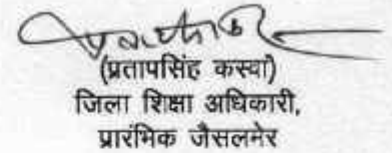 (प्रतापसिंह कस्वां)
जिला शिक्षा अधिकारी,
प्रारंभिक जैसलमेर